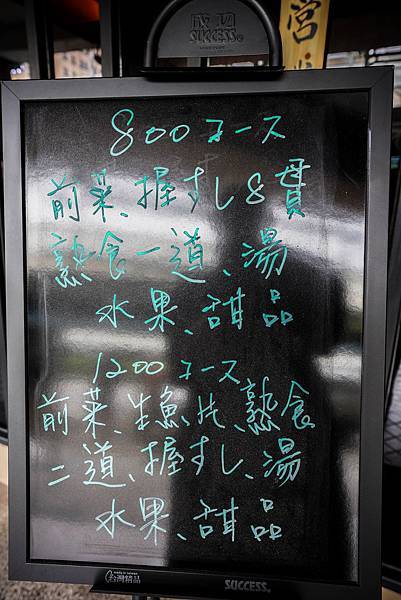 成功
SUCCESS®
営
800コース
前菜、握すし8貫
熟食一道、湯
水果、甜品
1200コース
前菜、生魚片、熟食
二道、握すし、湯
水果、甜品
made in taiwan
台灣精品
SUCCESS®